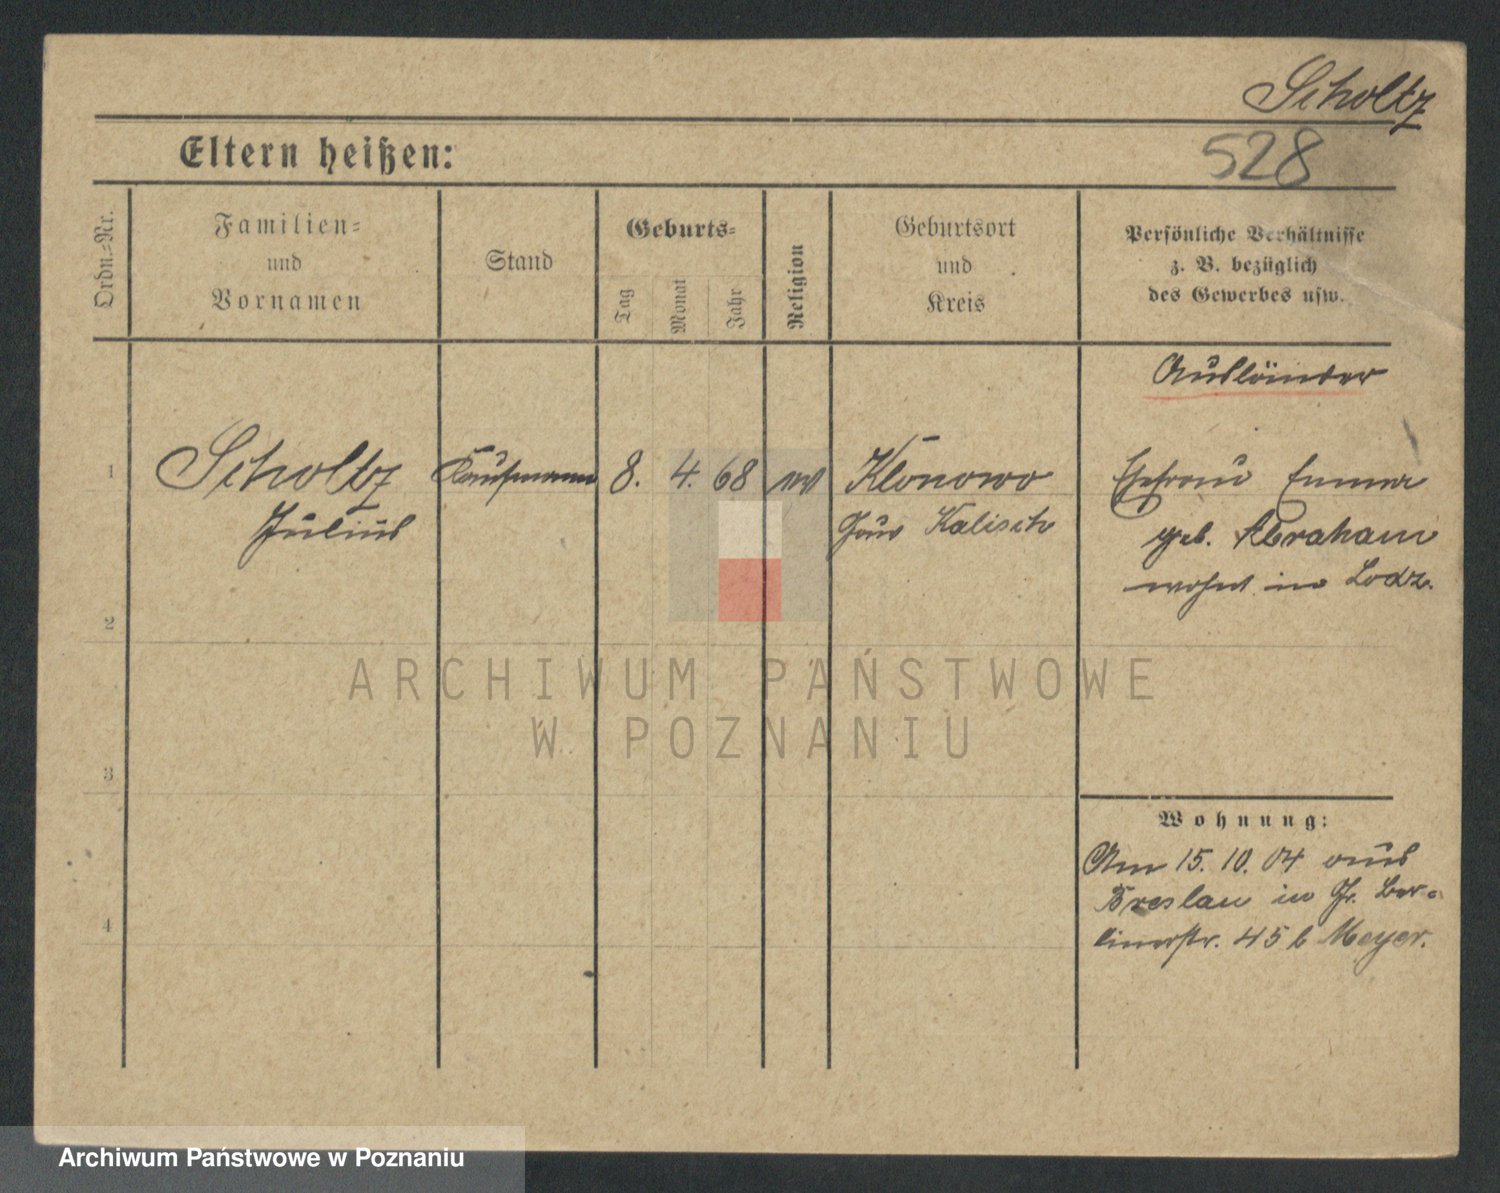 Scholtz
528
Eltern heißen:
Ordn.=Nr.
Familien=
und
Vornamen
Stand
Geburts=
Tag
Monat
Jahr
Religion
Geburtsort
und
Kreis
Persönliche Verhältnisse
z. B. bezüglich
des Gewerbes usw.
Ausländer
1
Scholtz
Julius
Kaufmann
8. 4. 68
ev
Klonowo
Gouv Kalisch
Ehefrau Emma
geb. Abraham
wohnt in Lodz.
2
3
4
Wohnung:
Am 15. 10. 04 aus
Breslau in Gr. Ber=
linerstr. 45 b Meyer.
ARCHIWUM PAŃSTWOWE
W POZNANIU
Archiwum Państwowe w Poznaniu